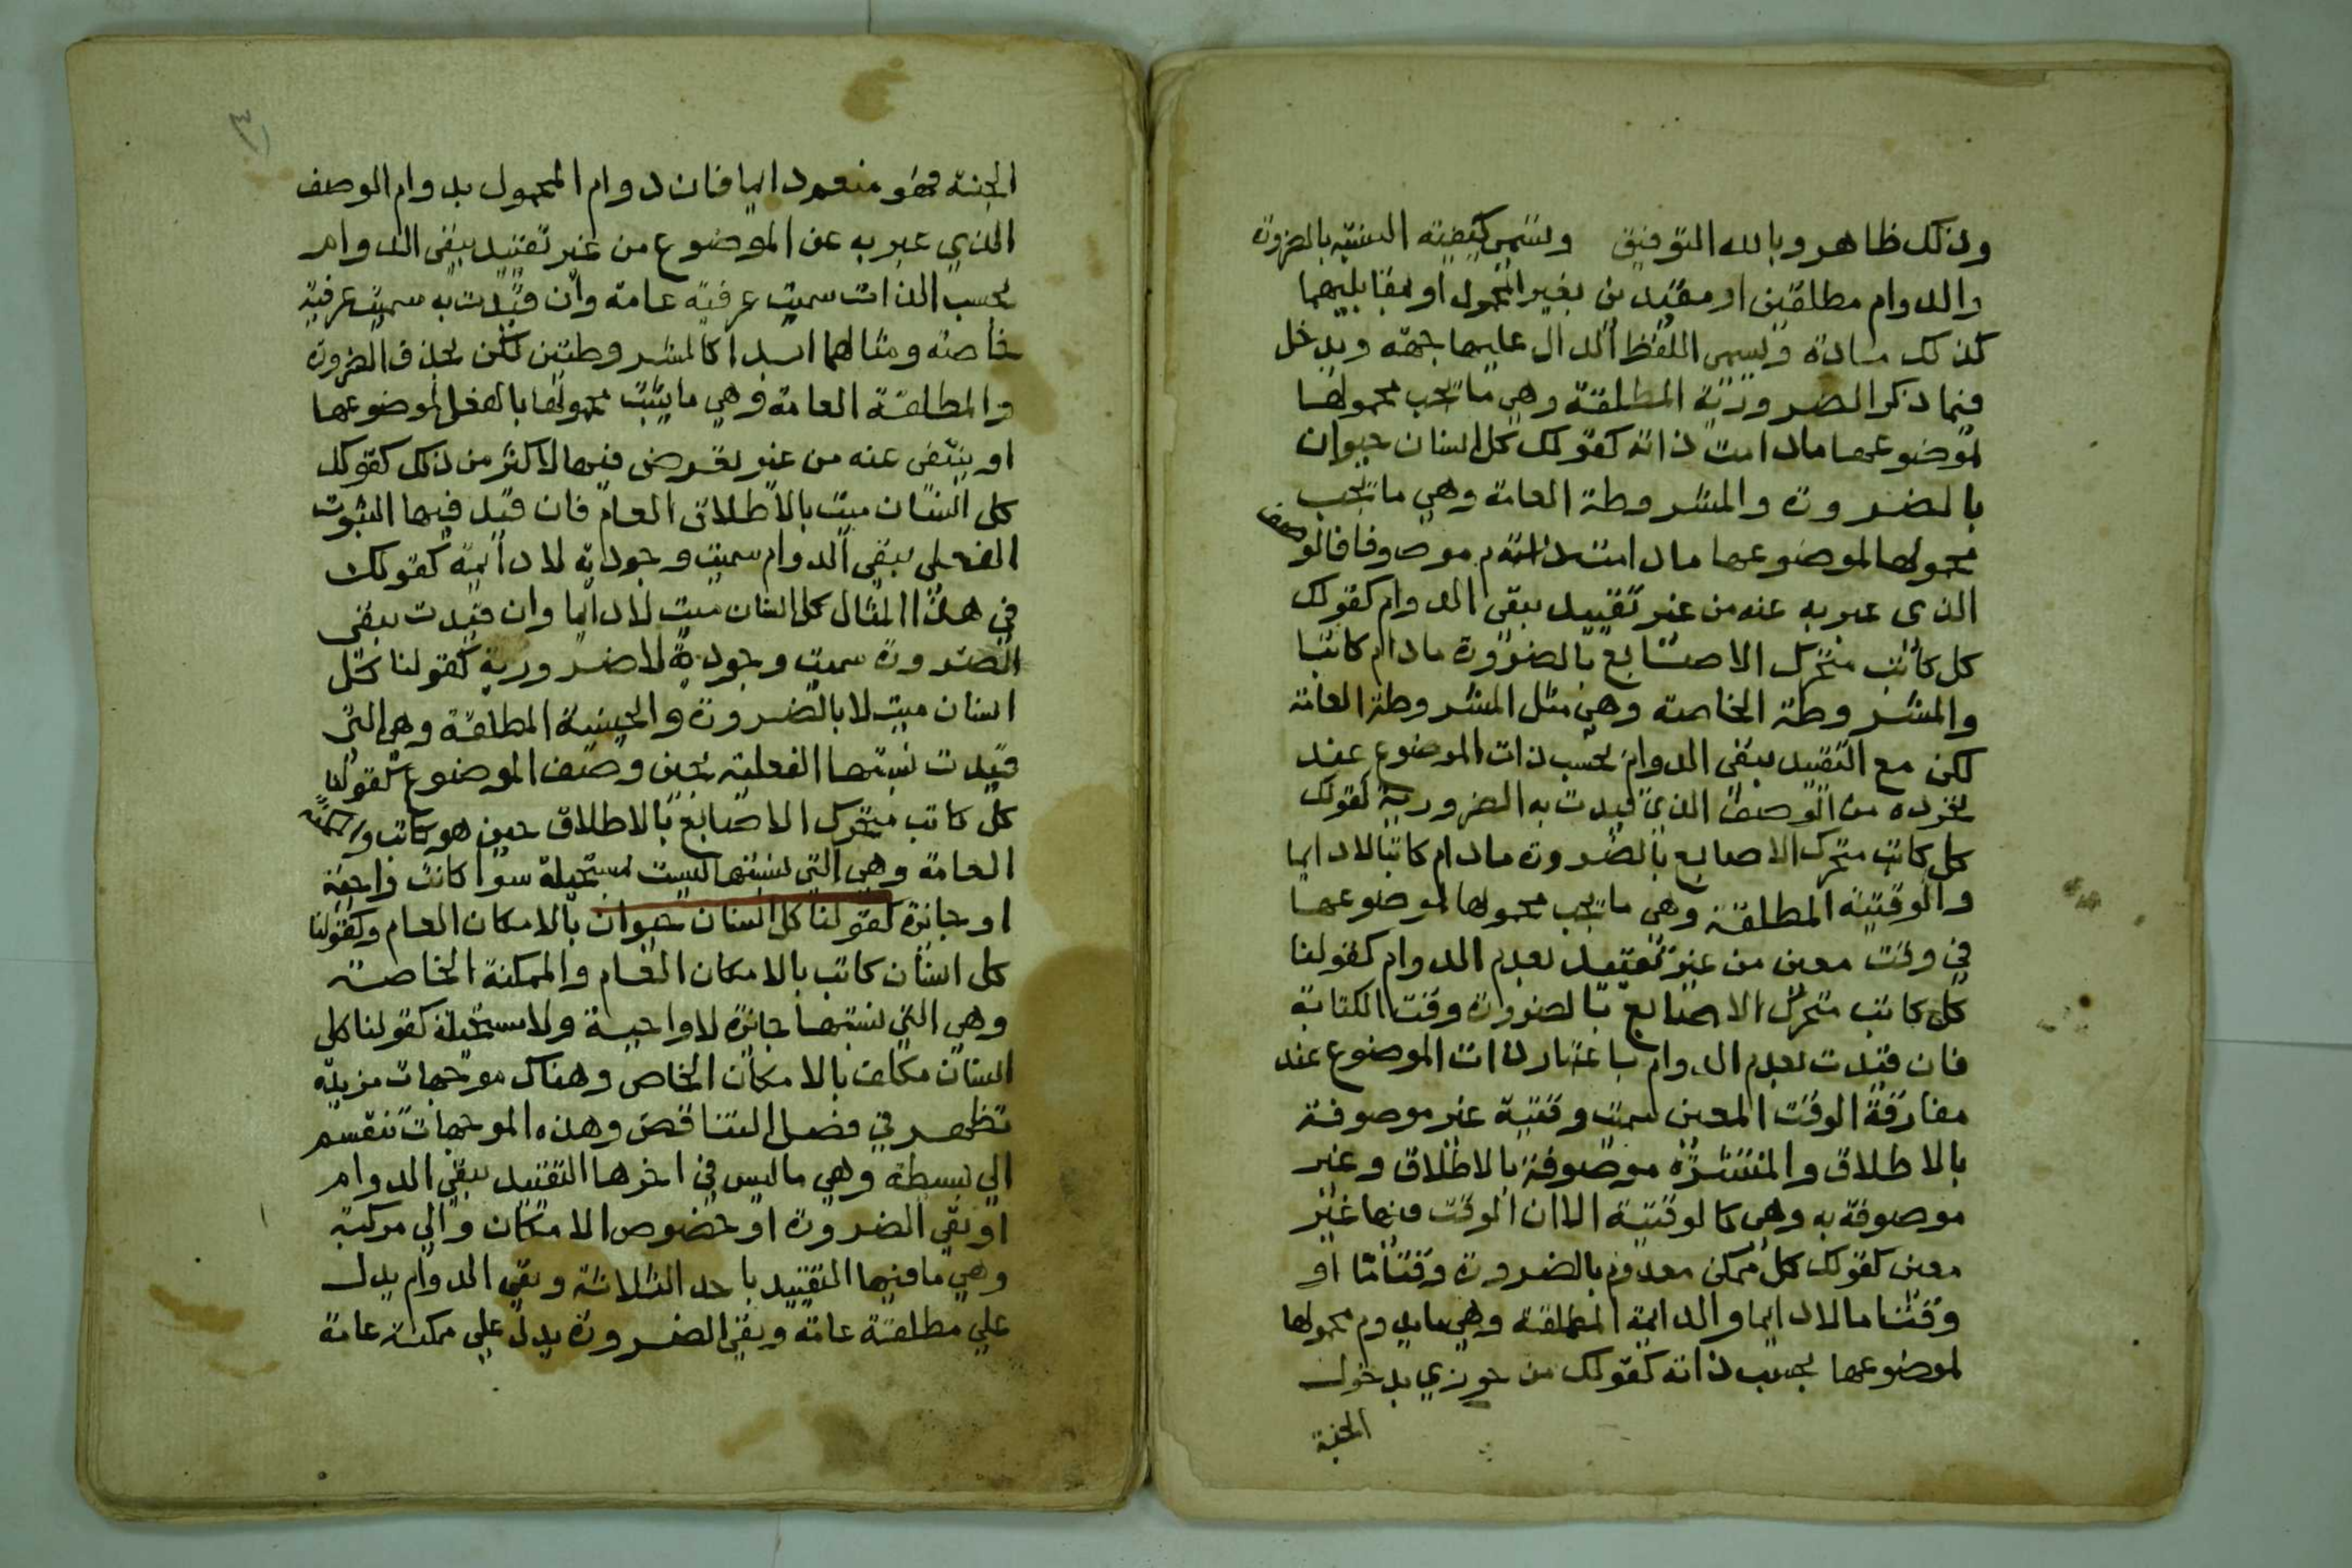 وذلك ظاهر وبالله التوفيق وتسمى كيفية النسبة بالضرورة
والدوام مطلقين او مقيدين بغير المحمول او بمقابليهما
كذلك مادة ويسمى اللفظ الدال عليها جهة ويدخل
فيما ذكر الضرورية المطلقة وهي ما يجب محمولها
لموضوعها مادامت ذاته كقولك كل انسان حيوان
بالضرورة والمشروطة العامة وهي ما يجب
محمولها لموضوعها مادامت ذاته موصوفا فالوصف
الذى عبر به عنه من غير تقييد بنفى الدوام كقولك
كل كاتب متحرك الاصابع بالضرورة مادام كاتبا
والمشروطة الخاصة وهي مثل المشروطة العامة
لكن مع التقييد بنفى الدوام بحسب ذات الموضوع عند
تجرده من الوصف الذي قيدت به الضرورية كقولك
كل كاتب متحرك الاصابع بالضرورة مادام كاتبا لا دايما
والوقتية المطلقة وهي ما يجب محمولها لموضوعها
في وقت معين من غير تقييد بعدم الدوام كقولنا
كل كاتب متحرك الاصابع بالضرورة وقت الكتابة
فان قيدت بعدم الدوام باعتبار ذات الموضوع عند
مفارقة الوقت المعين سميت وقتية غير موصوفة
بالاطلاق والمنتشرة موصوفة بالاطلاق وغير
موصوفة به وهي كالوقتية الا ان الوقت فيها غير
معين كقولك كل ممكن معدوم بالضرورة وقتا ما او
وقتا ما لا دايما والدايمة المطلقة وهي ما يدوم محمولها
لموضوعها بحسب ذاته كقولك من جوزي بدخول
الجنة
٣
الجنة فهو منعم دايما فان دوام المحمول بدوام الوصف
الذي عبر به عن الموضوع من غير تقييد بنفى الدوام
بحسب الذات سميت عرفية عامة وان قيدت به سميت عرفية
خاصة ومثالهما ابدا كالمشروطتين لكن بحذف الضرورة
والمطلقة العامة وهي ما يثبت محمولها بالفعل لموضوعها
او ينتفى عنه من غير تعرض فيها لاكثر من ذلك كقولك
كل انسان ميت بالاطلاق العام فان قيد فيها الثبوت
الفعلى بنفى الدوام سميت وجودية لا دائمة كقولك
في هذا المثال كل انسان ميت لا دايما وان قيدت بنفى
الضرورة سميت وجودية لا ضرورية كقولنا كل
انسان ميت لا بالضرورة والحينية المطلقة وهي التى
قيدت نسبتها الفعلية بحين وصف الموضوع كقولنا
كل كاتب متحرك الاصابع بالاطلاق حين هو كاتب والممكنة
العامة وهي التي نسبتها ليست مستحيلة سوا كانت واجبة
او جائزة كقولنا كل انسان حيوان بالامكان العام وكقولنا
كل انسان كاتب بالامكان العام والممكنة الخاصة
وهي التي نسبتها جائزة لا واجبة ولا مستحيلة كقولنا كل
انسان مكلف بالامكان الخاص وهناك موجهات مزيدة
تظهر في فصل التناقض وهذه الموجهات تنقسم
الي بسيطة وهي ما ليس في اخرها التقييد بنفي الدوام
او نفي الضرورة او خصوص الامكان والي مركبة
وهي ما فيها التقييد باحد الثلاثة ونفي الدوام يدل
علي مطلقة عامة ونفي الضرورة يدل علي ممكنة عامة